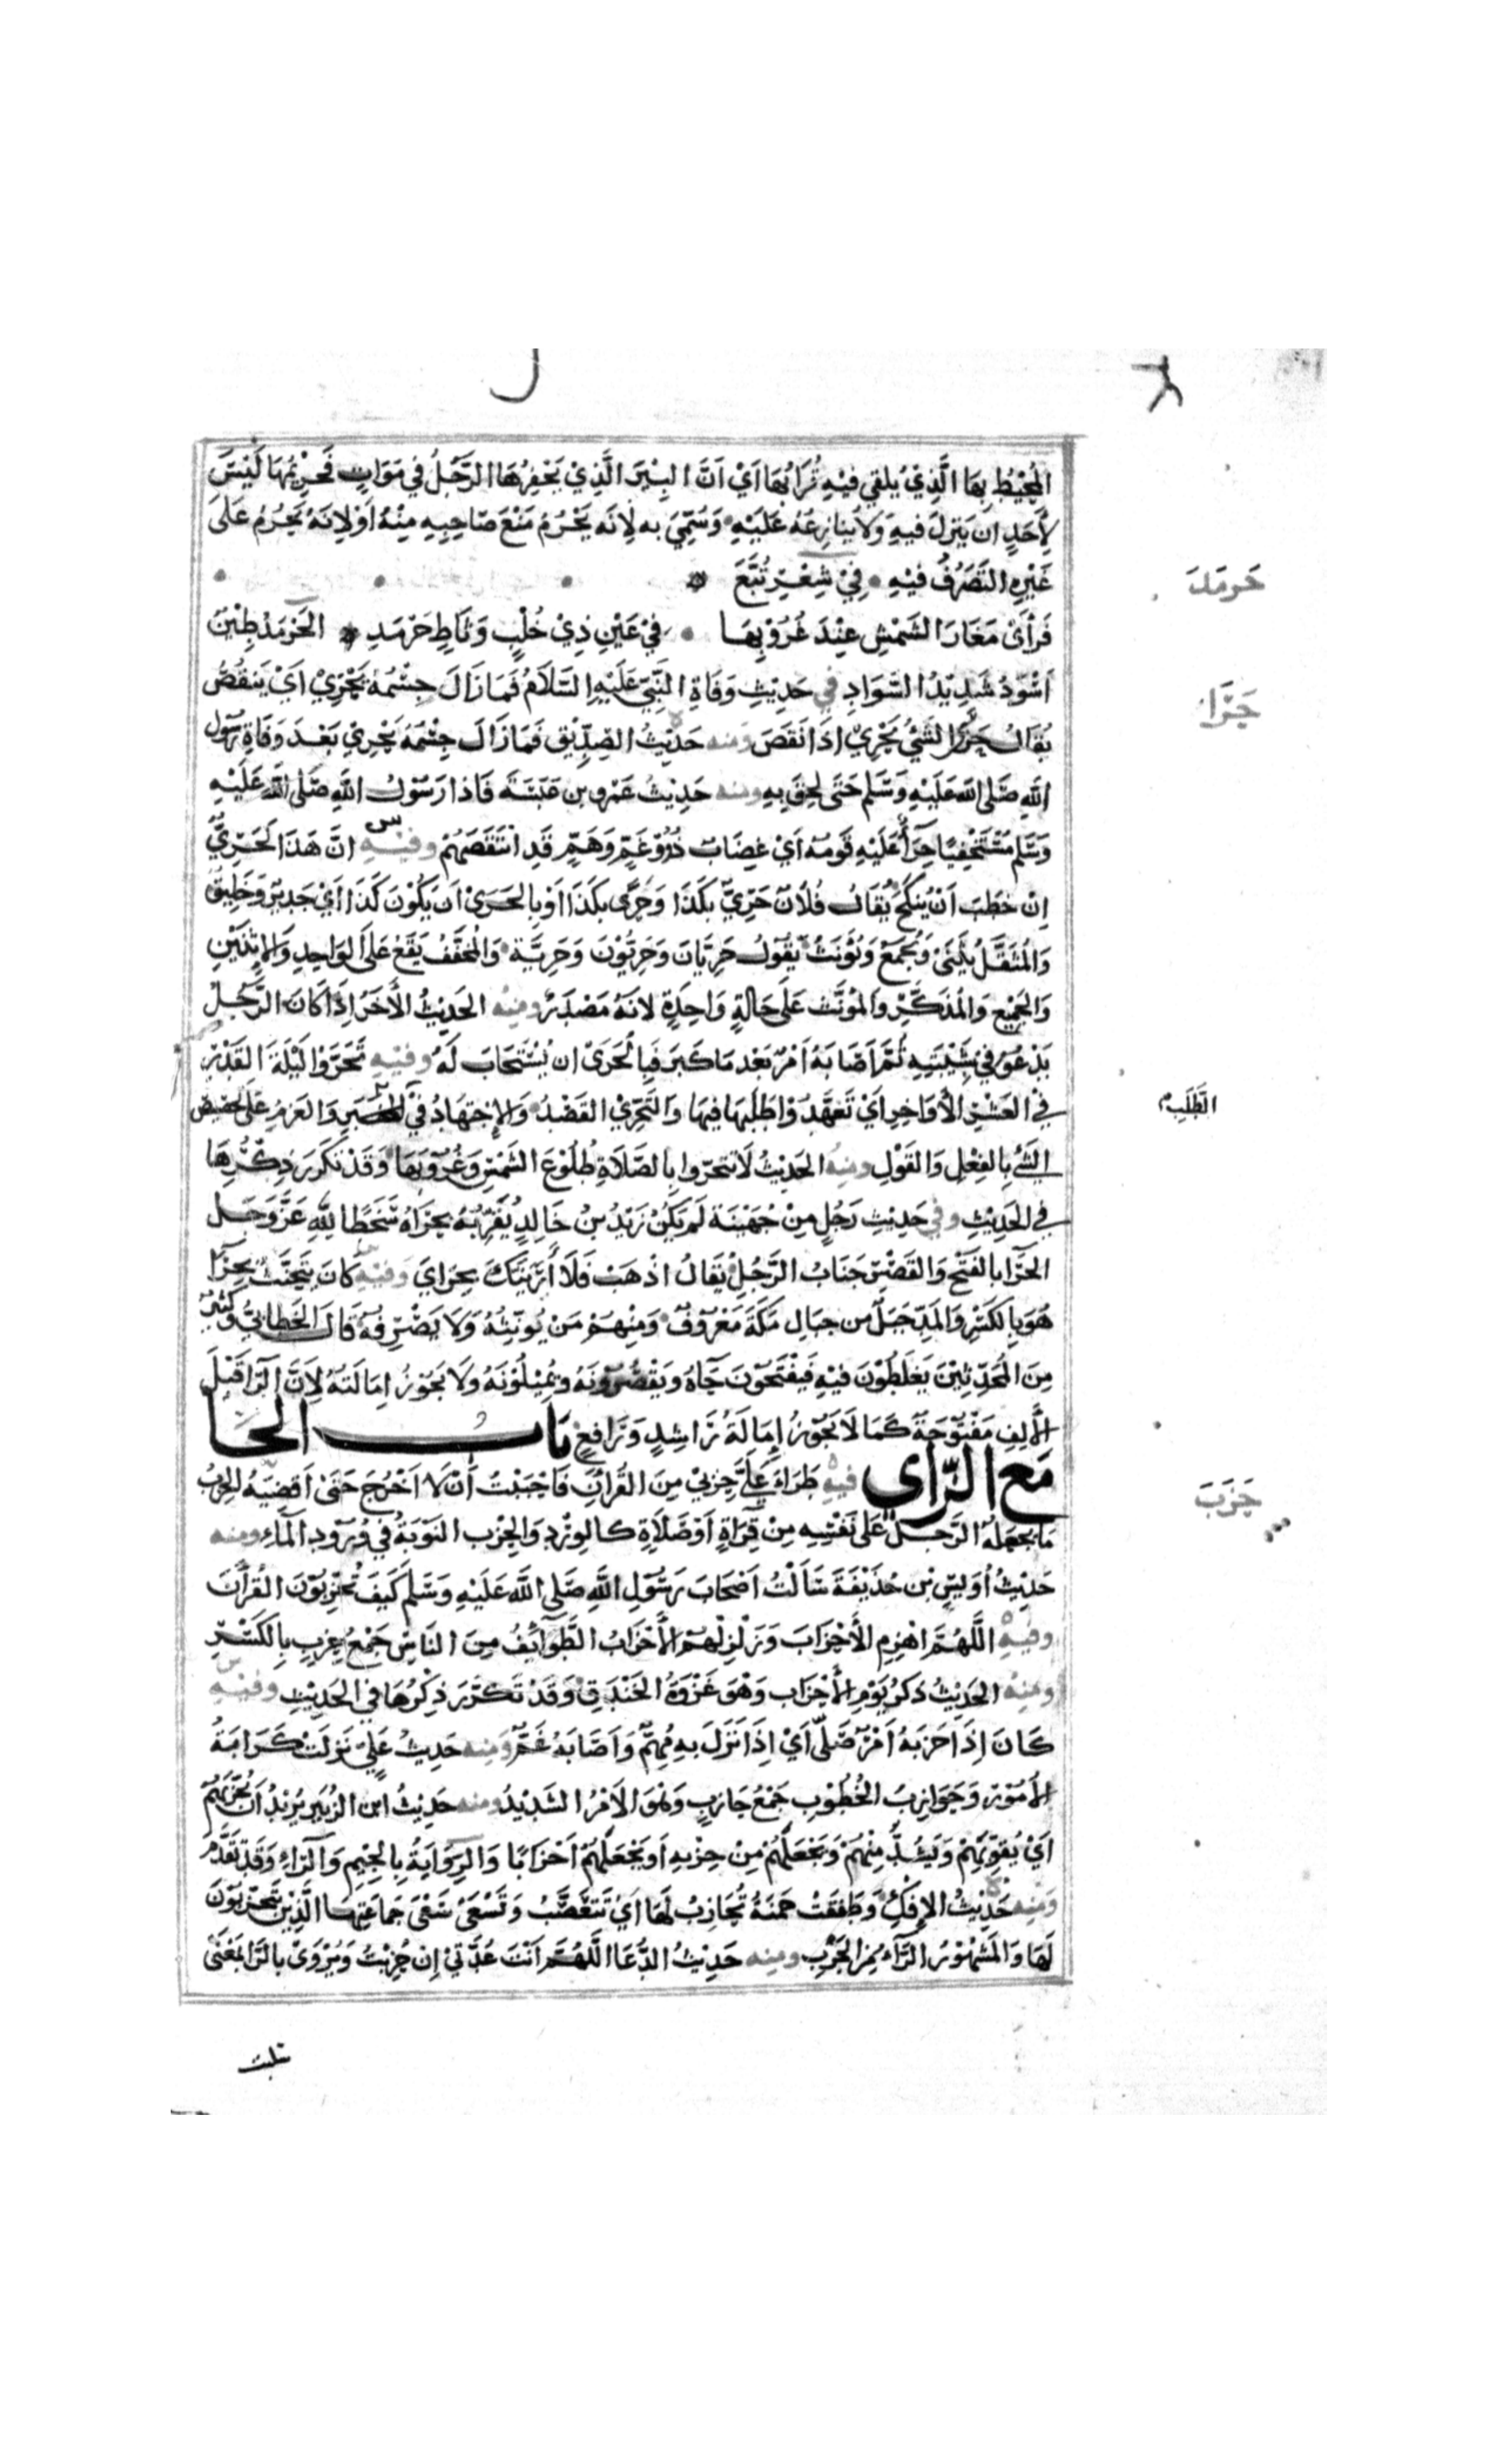 المُحِيْطُ بِهَا الَّذِيْ يُلقي فيْهِ تُرَابُهَا اَيْ اَنَّ البِيْرَ الَّذِيْ يَحْفِرُهَا الرَّجُلُ في مَوَاتٍ فَحَرِيْمُهَا لَيْسَ
لِأَحَدٍ ان يَنزِلَ فيهِ وَلَا يُنَازِعَهُ عَلَيْهِ وَسُمِّيَ به لِأنَه يَحْرُمُ مَنْعَ صَاحِبِهِ مِنْهُ اَوْ لِانَهُ يَحْرُمُ عَلَى
غَيْرِهِ التَصَرُّفُ فيْهِ في شِعْرِ تُبَّعَ
حرمد
فَرَأَىْ مَغَارَ الشَمْسِ عِنْدَ غُرُوْبِهَا في عَيْنِ ذِيْ خُلْبٍ وَثَاطٍ حَرْمَدِ الحَرْمَدُ طِيْنٌ
اَسْوَدُ شَدِيْدُ السَّوَادِ في حَدِيْثِ وَفَاةِ النَّبِيّ عَلَيْهِ السَّلَامُ فَمَا زَالَ جِسْمُهُ يَحْرِيْ اَيْ يَنقُصُ
حَرَا
يُقَالُ حَرَى الشَيْئُ يَحْرِيْ اذَا نَقَصَ ومنه حَدِيْثُ الصِدِّيْق فَمَا زَالَ جِسْمُهُ يَحْرِيْ بَعْدَ وَفَاةِ رَسُوْلِ
اللهِ صَلَى اللهُ عَلَيْهِ وَسَلم حَتَى لحِقَ بِهِ ومنه حَدِيْثُ عَمْرِو بن عَبَسَةَ فَاذا رَسُوْلُ اللهِ صَلَى اللهُ عَلَيْهِ
وَسَلم مُسْتَخْفِيًا حِرَاءٌ عَلَيْهِ قَومُهُ اَيْ غِضَابٌ ذُوُوْ غَمٍّ وَهَمٍّ قَدِ انْتَقَصَهُمْ وفيه انَّ هَذَا لَحَرِيٌّ
اِنْ خَطَبَ اَنْ يُنكَحَ يُقَالُ فُلَانٌ حَرِيٌّ بِكَذَا وَحَرًى بكَذَا اَوْ بِالحَرَىْ اَن يَكُوْنَ كَذَا اَيْ جَدِيْرٌ وَخَلِيْقٌ
وَالمُثَقَّلُ يُثَنَىْ وَيُجمَعُ وَيُؤَنَثُ يقُولُ حَرِيَّانَ وَحَرِيُّوْنَ وَحَرِيَّة وَالمُخَفَّفُ يَقَعُ عَلَى الوَاحِدِ وَالاِثْنَيْنِ
وَالجَمِيْعِ وَالمُذَكَّرِ وَالمُوَنَّثِ عَلَى حَالَةٍ وَاحِدَةٍ لانَهُ مَصْدَرٌ ومنه الحَدِيْثُ الأَخَرُ اِذَا كَانَ الرَّجُلُ
يَدْعُوْ في شَبِيْبَتِهِ ثُمَّ اَصَابَهُ اَمْرٌ بَعْد مَا كَبِرَ فَبِالحَرَىْ ان يُسْتَجَابَ لَهُ وفيه تَحَرَّوْا لَيْلَةَ القَدْرِ
في العَشْرِ الأَوَاخِرِ اَيْ تَعَهَّدُوْا طَلَبَهَا فيهَا وَالتَحَرِّيْ القَصْدُ وَالاِجْتِهَادُ في وَالعَزمُ عَلَى تخصِيْصِ
الطَلَبِ
الشَئِ بِالفِعْلِ وَالقَوْلِ ومنه الحَدِيْثُ لَا تتحَرّوا بِالصَّلَاةِ طُلُوْعَ الشَمْسِ وَغُرُوْبَهَا وَقَدْ تكَرَرَ ذِكْرُهَا
في الحَدِيْثِ وفي حَدِيْثِ رَجُلٍ مِنْ جُهَيْنَة لَمْ يَكُنْ زَيْدُ بنُ خَالِدٍ يُقَرِّبُهُ بِحَرَاهُ سَخَطًا للهِ عَزَّ وَجَل
الحَرَا بالفَتْحِ وَالقَصْرِ جَنَابُ الرَّجُلِ يُقَالُ اذْهَبْ فَلَا أَرَيَنَكَ بِحَرَايَ وفيه كَانَ يَتَحَنَّثُ بِحِرَاءٍ
هُوَ بِالكَسْرِ وَالمَدِّ جَبَلٌ من جبَالِ مَكَةَ مَعْرُوفٌ وَمِنْهُمْ مَنْ يُونِّثُهُ وَلَا يَصْرِفُهُ قَالَ الخَطابيُّ وَكَثِيْرٌ
مِنَ المُحَدِّثِيْنَ يَغلَطُوْن فيْهِ فَيَفْتَحُوْنَ حَآءَهُ وَيَقْصُرُوْنَهُ وَيُمِيْلُوْنَهُ وَلَا يَجُوْزُ اِمَالَتُهُ لِاَنَّ الرَّا قَبْلَ
الأَلِفِ مَفْتُوْحَةٌ كَمَا لَا يَجُوْزُ اِمَالَةُ رَاشِدٍ وَرَافِعٍ بَاب الحَا
مَع الزَّاي فيه طَرَاءَ عَلَيَّ حِزْبيْ مِنَ القُرْاَنِ فَاحْبَبْتُ اَنْ لَا اَخْرُجَ حَتَىْ اَقضِيَهُ الحِزْبُ
حَزَبَ
مَا يَجْعَلُهُ الرَّجُلُ عَلَى نَفْسِهِ مِنْ قِرَاةٍ اَوْ صَلَاةٍ كَالوِرْدِ وَالحِزْب النَوْبَةُ في وُرُوْدِ المَآءِ ومنه
حَدِيْثُ اُوَيسِ بْنِ حُذَيْفَةَ سَاَلْتُ اَصْحَابَ رَسُوْلِ اللهِ صَلَى اللهُ عَلَيْهِ وَسَلم كَيفَ تُحَزِّبُوْنَ القُرْأَنَ
وفيه اللَّهُمَّ اهْزِمِ الأَحْزَابَ وَزَلْزِلْهُمْ الأَحْزَابُ الطَّوَآئِفُ مِنَ النَاسِ جَمْعُ حِزْبٍ بِالكَسْرِ
ومنه الحَدِيْثُ ذكرُ يَوْمِ الأَحْزَاب وَهْوَ غَزْوَةُ الخَنْدَقِ وَقَدْ تَكَرَّرَ ذِكْرُهَا في الحَدِيْثِ وفيه
كَانَ اِذَا حَزَبَهُ اَمْرٌ صَلَّى اَيْ اِذَا نَزَلَ بِهِ مُهِمٌّ وَاَصَابَهُ غَمٌّ ومنه حَدِيثُ عَلِيٍّ نزلَتْ كَرَايهُ
الأُمُوْرِ وَحَوَازِبُ الخُطُوْبِ جَمْعُ حَازِبٍ وَهْوَ الاَمْرُ الشَدِيْدُ ومنه حَدِيْثُ ابْن الزُبَيْرِ يُرِيْدُ اَن يُحَزِّبَهُمْ
اَيْ يُقوِّيَهُمْ وَيَشُدَّ مِنْهُمْ وَيَجْعَلَهُمْ مِنْ حِزْبهِ اَو يَجْعَلَهُمْ اَحْزَابًا وَالرِوَايَةُ بِالجِيْمِ وَالرَّاءِ وَقَدْ تَقَدَّمَ
ومنه حَدِيْثُ الإِفْكِ وَطَفِقَتْ حَمْنَةُ تُحَازِبُ لَهَا اَيْ تَتَعَصَّبُ وَتَسْعَىْ سَعْيَ جَمَاعَتِهَا الَّذِيْنَ يَتَحَزَّبُوْنَ
لَهَا وَالمَشْهُوْرُ بالرَّاءِ مِنَ الحَرْبِ ومنه حَدِيْثُ الدُّعَا اللَّهُمَّ اَنْتَ عُدَّتيْ اِن حُزِبْتُ وَيُرْوَىْ بالرَّا بمَعْنَىْ
سُلبْتُ